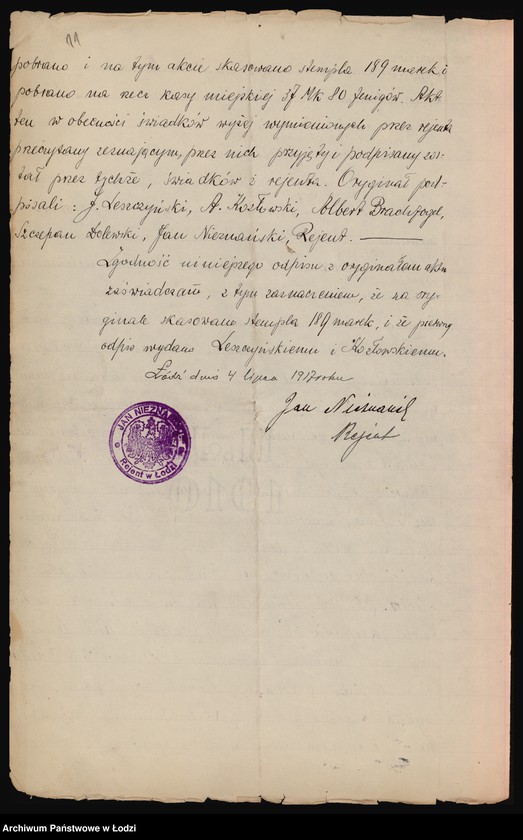 11
pobrano i na tym akcie skasowano stempla 189 marek i
pobrano na rzecz kasy miejskiej 37 Mk 80 fenigów. Akt
ten w obecności świadków wyżej wymienionych przez rejenta
przeczytany zeznającym, przez nich przyjęty i podpisany zos-
tał przez tychże, świadków i rejenta. Oryginał pod-
pisali: J. Leszczyński, A. Kozłowski, Albert Brachvogel,
Szczepan Dolewski, Jan Nieznański, Rejent.
Zgodność niniejszego odpisu z oryginałem aktu
zaświadczam, z tym zaznaczeniem, że na ory-
ginale skasowano stempla 189 marek, i że pierwszy
odpis wydano Leszczyńskiemu i Kozłowskiemu.
Łódź dnia 4 lipca 1917 roku
Jan Nieznański
Rejent
JAN NIEZNAŃSKI
Rejent w Łodzi
Archiwum Państwowe w Łodzi